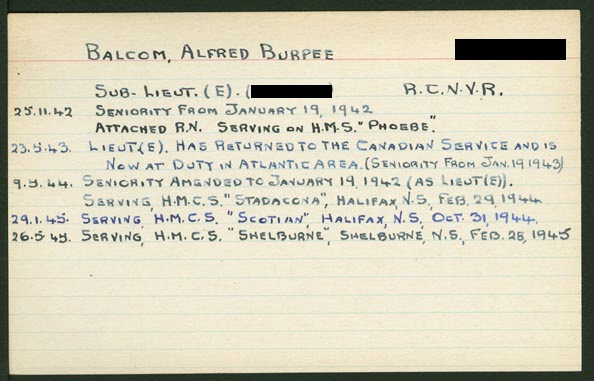 BALCOM, ALFRED BURPEE
SUB-LIEUT. (E). ( ) R.C.N.V.R.
25.11.42 SENIORITY FROM JANUARY 19, 1942
ATTACHED R.N. SERVING ON H.M.S. "PHOEBE".
23.5.43. LIEUT(E). HAS RETURNED TO THE CANADIAN SERVICE AND IS
NOW AT DUTY IN ATLANTIC AREA. (SENIORITY FROM JAN.19,1943)
9.5.44. SENIORITY AMENDED TO JANUARY 19, 1942 (AS LIEUT(E)).
SERVING, H.M.C.S. "STADACONA", HALIFAX, N.S, FEB. 29, 1944
29.1.45. SERVING, H.M.C.S. "SCOTIAN", HALIFAX, N.S, OCT. 31, 1944.
26.5.45. SERVING, H.M.C.S. "SHELBURNE", SHELBURNE, N.S, FEB. 28, 1945